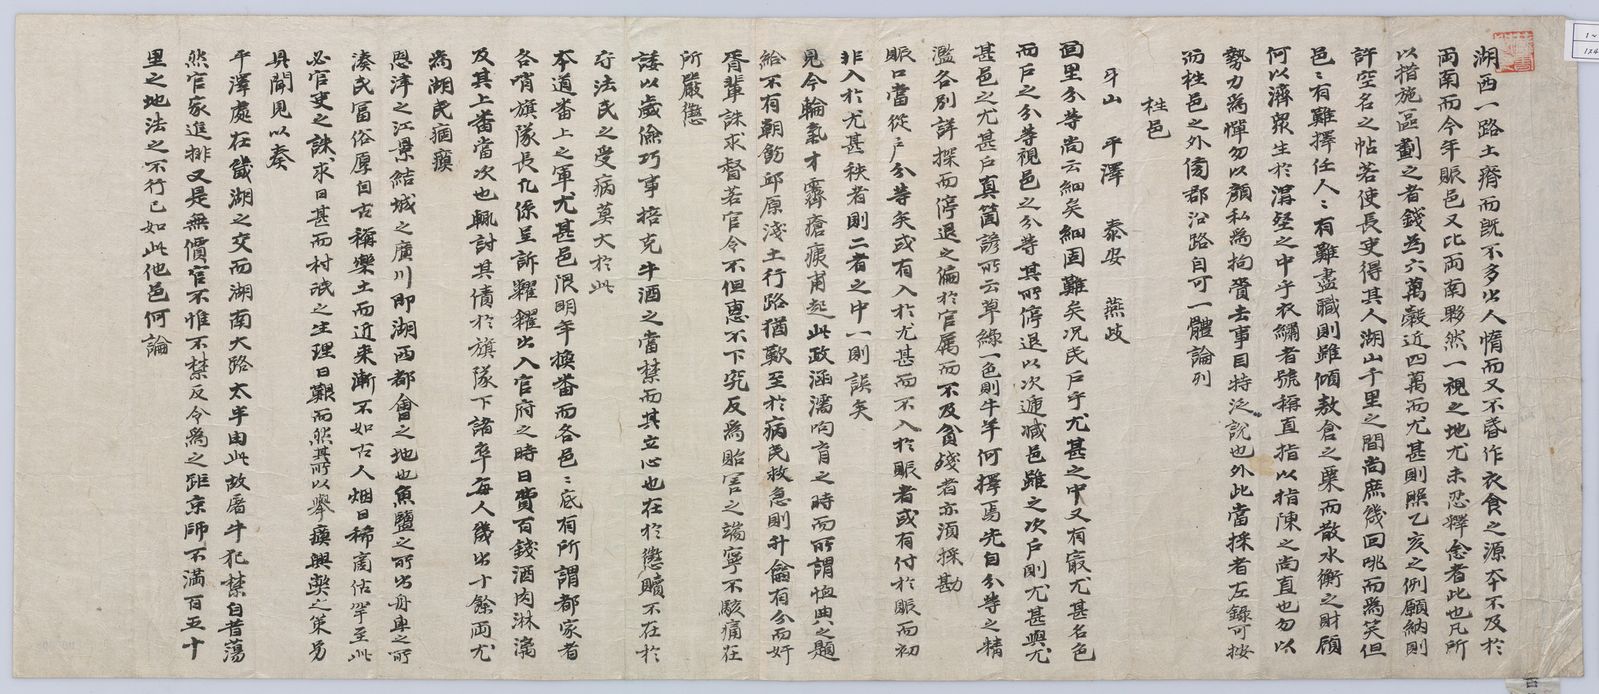 湖西一路土瘠而既不多出人惰而又不昏作衣食之源本不及於
両南而今年賑邑又比両南夥然一視之地尤未忍釋念者此也凡所
以措施區劃之者錢為六萬穀近四萬而尤甚則照乙亥之例願納則
許空名之帖若使長吏得其人湖山千里之間尚庶幾回咷而為笑但
邑〻有難擇任人〻有難盡職則雖傾敖倉之粟而散水衡之財顧
何以濟衆生於溝壑之中乎衣繡者號稱直指以指陳之尚直也勿以
勢力為憚勿以顔私為拘賫去事目特泛說也外此當採者左錄可按
而栍邑之外傍郡沿路自可一體論列
栍邑
牙山 平澤 泰安 燕歧
面里分等尚云細矣細固難矣况民戶乎尤甚之中又有㝡尤甚名色
而戶之分等視邑之分等其所停退以次逓减邑雖之次戶則尤甚與尤
甚邑之尤甚戶真箇諺所云草綠一色則牛羊何擇焉先自分等之精
濫各別詳探而停退之偏於官属而不及貧殘者亦須採勘
賑口當從戶分等矣或有入於尤甚而不入於賑者或有付於賑而初
非入於尤甚秩者則二者之中一則誤矣
見今輪氣才霽瘡痍甫起此政涵濡呴育之時而所謂恤典之題
給不有朝飭邱原淺土行路猶歎至於病民救急則升龠有分而奸
胥輩誅求督若官令不但惠不下究反為貽害之端寧不駭痛在
所嚴懲
諉以歲儉巧事掊克牛酒之當禁而其立心也在於懲贖不在於
守法民之受病莫大於此
本道番上之軍尤甚邑限明年換番而各邑〻底有所謂都家者
各哨旗隊長凡係呈訴糶糴出入官府之時日費百錢酒肉淋漓
及其上番當次也輒討其債於旗隊下諸卒每人幾出十餘両尤
為湖民痼瘼
恩津之江景結城之廣川即湖西都會之地也魚鹽之所出舟車之所
湊民富俗厚自古稱樂土而近来漸不如古人烟日稀商估罕至此
必官吏之誅求日甚而村氓之生理日艱而然其所以擧瘼興獘之策另
具聞見以奏
平澤處在畿湖之交而湖南大路太半由此故屠牛犯禁自昔蕩
然官家進排又是無價官不惟不禁反令為之距京師不滿百五十
里之地法之不行已如此他邑何論